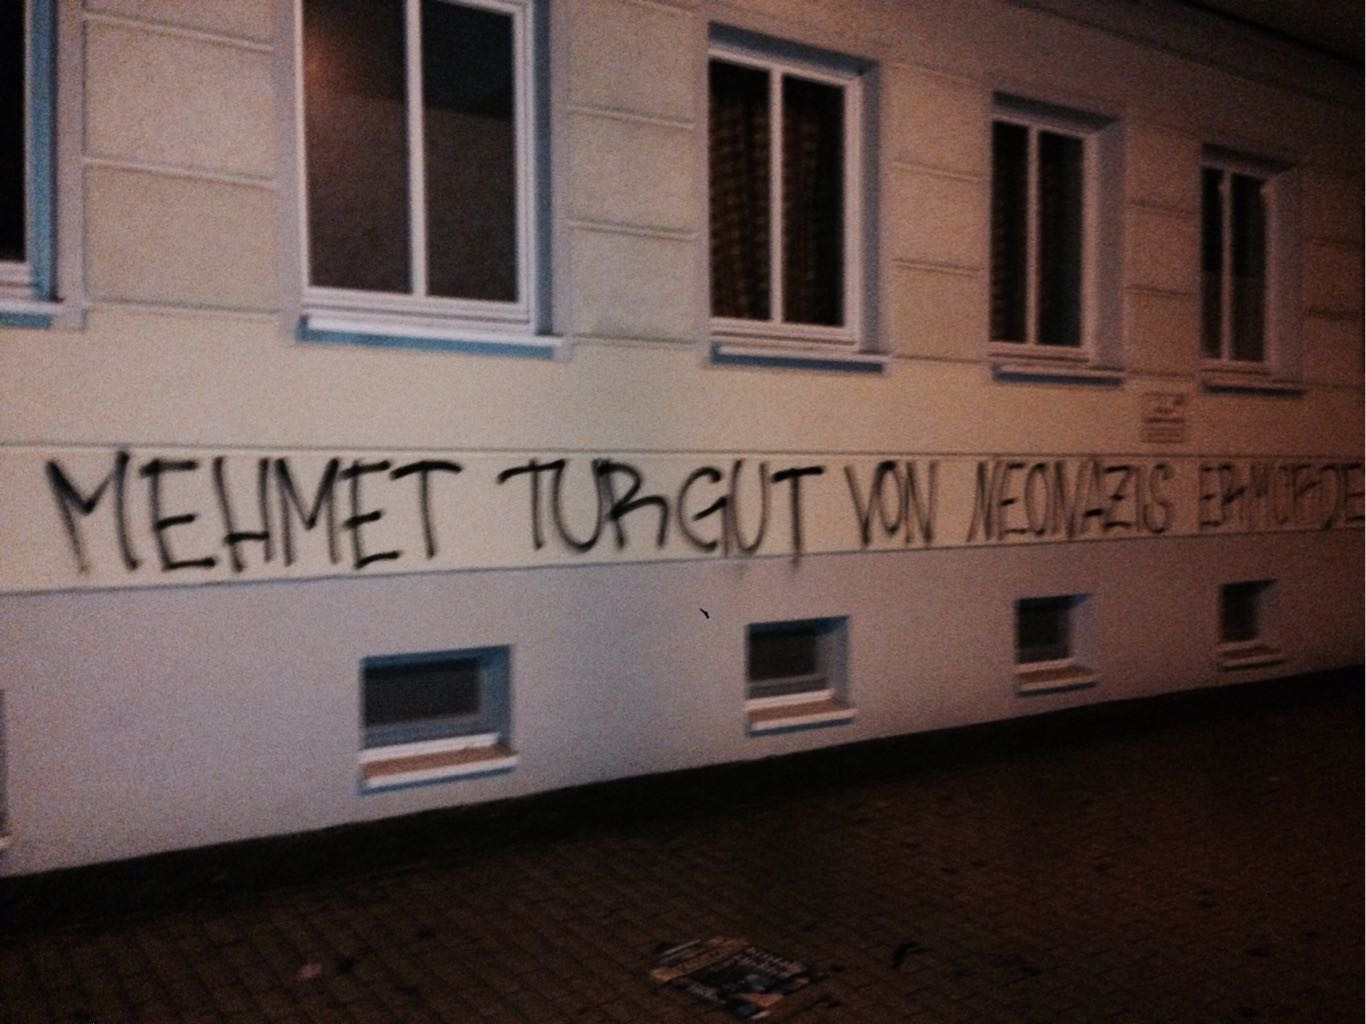 MEHMET TURGUT VON NEONAZIS ERMORDE